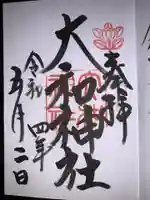 奉拝
大和神社
令和四年
五月二日